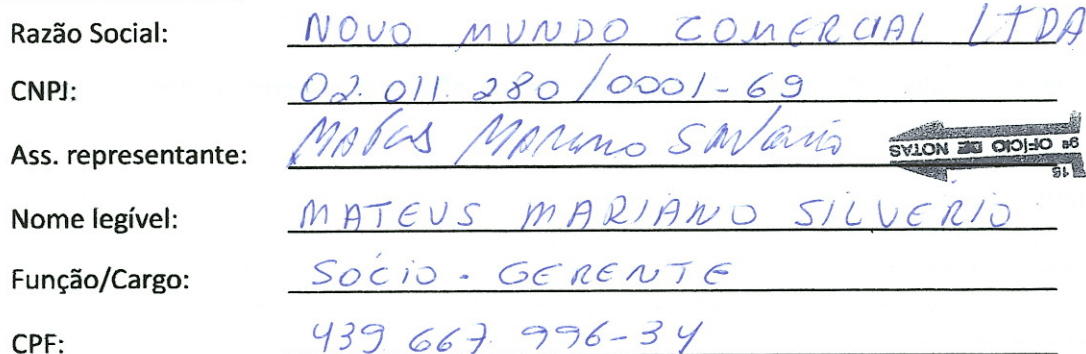 Razão Social: NOVO MUNDO COMERCIAL LTDA
CNPJ: 02.011.280/0001-69
Ass. representante: Mateus Mariano Silverio
9º OFÍCIO DE NOTAS
15
Nome legível: MATEUS MARIANO SILVERIO
Função/Cargo: SÓCIO - GERENTE
CPF: 439.667.996-34